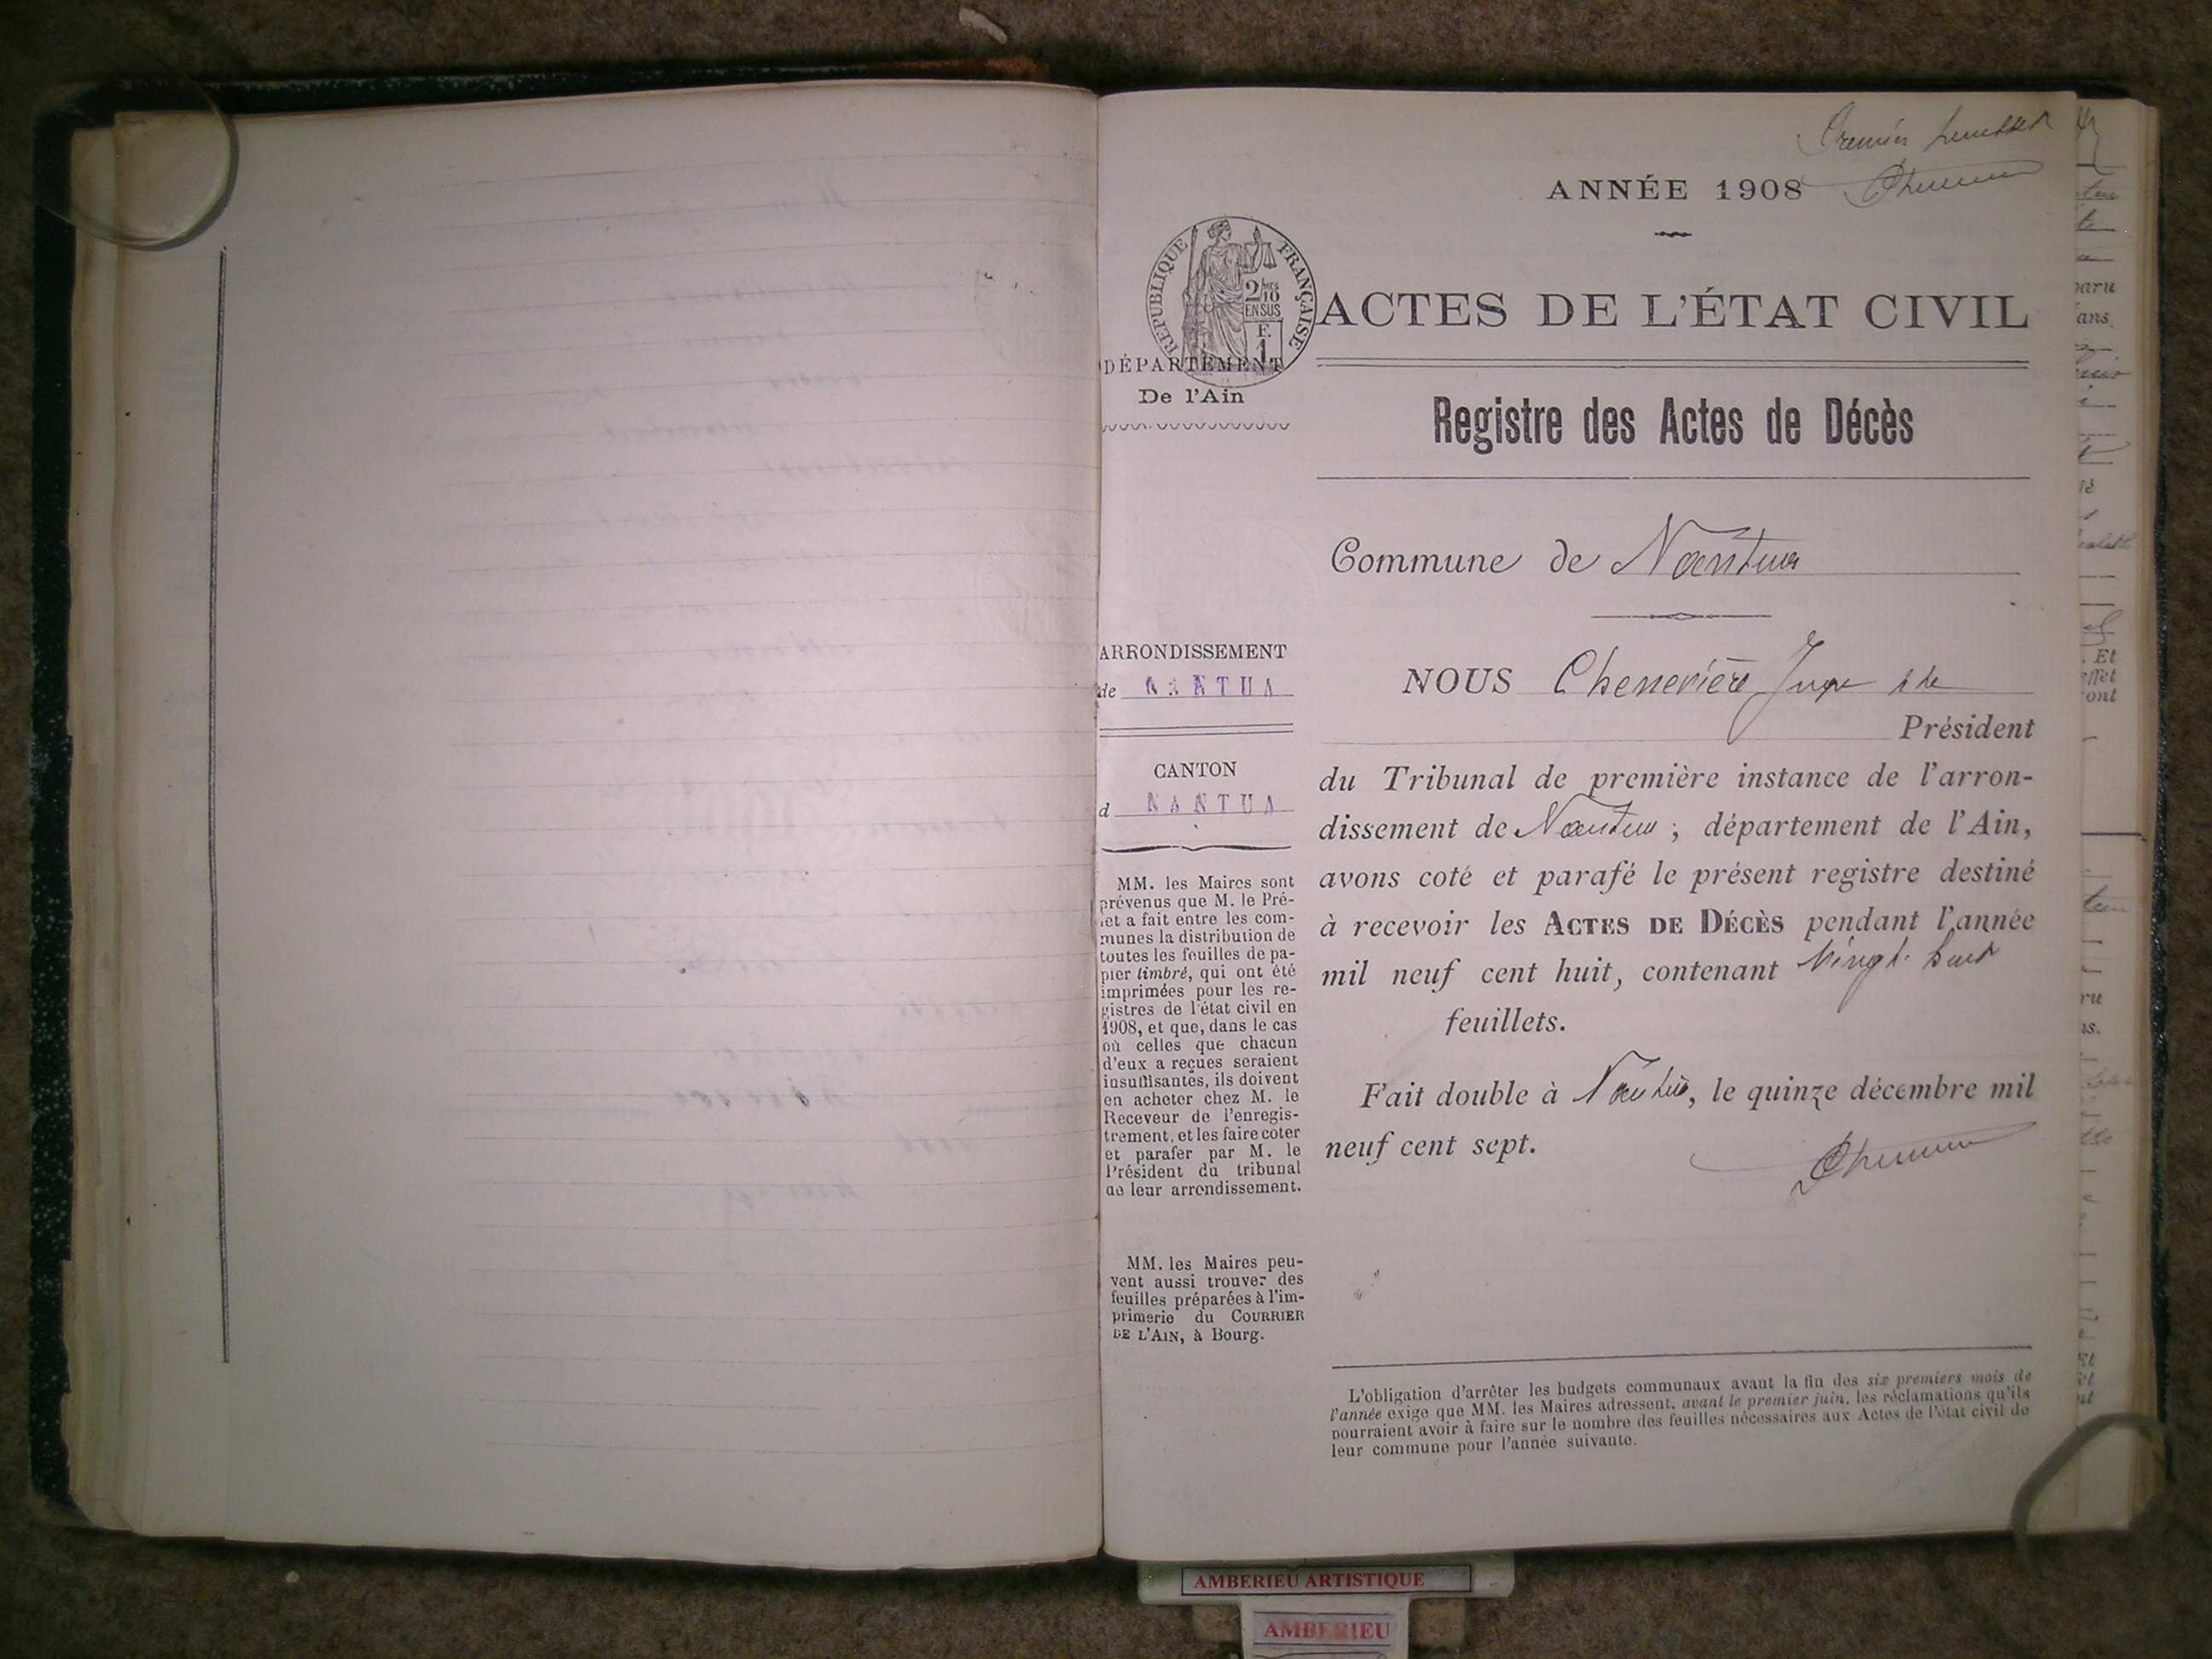 Premier
ANNÉE 1908
RÉPUBLIQUE FRANÇAISE
2/10
EN SUS
F.
1
ACTES DE L'ÉTAT CIVIL
DÉPARTEMENT
De l'Ain
Registre des Actes de Décès
Commune de Nantua
ARRONDISSEMENT
de NANTUA
NOUS Chenevière Juge
Président
CANTON
d NANTUA
du Tribunal de première instance de l'arron-
dissement de Nantua ; département de l'Ain,
avons coté et parafé le présent registre destiné
à recevoir les ACTES DE DÉCÈS pendant l'année
mil neuf cent huit, contenant Vingt huit
feuillets.
Fait double à Nantua, le quinze décembre mil
neuf cent sept.
MM. les Maires sont
prévenus que M. le Pré-
fet a fait entre les com-
munes la distribution de
toutes les feuilles de pa-
pier timbré, qui ont été
imprimées pour les re-
gistres de l'état civil en
1908, et que, dans le cas
où celles que chacun
d'eux a reçues seraient
insuffisantes, ils doivent
en acheter chez M. le
Receveur de l'enregis-
trement, et les faire coter
et parafer par M. le
Président du tribunal
de leur arrondissement.
MM. les Maires peu-
vent aussi trouver des
feuilles préparées à l'im-
primerie du COURRIER
DE L'AIN, à Bourg.
L'obligation d'arrêter les budgets communaux avant la fin des six premiers mois de
l'année exige que MM. les Maires adressent, avant le premier juin, les réclamations qu'ils
pourraient avoir à faire sur le nombre des feuilles nécessaires aux Actes de l'état civil de
leur commune pour l'année suivante.
AMBERIEU ARTISTIQUE
AMBERIEU